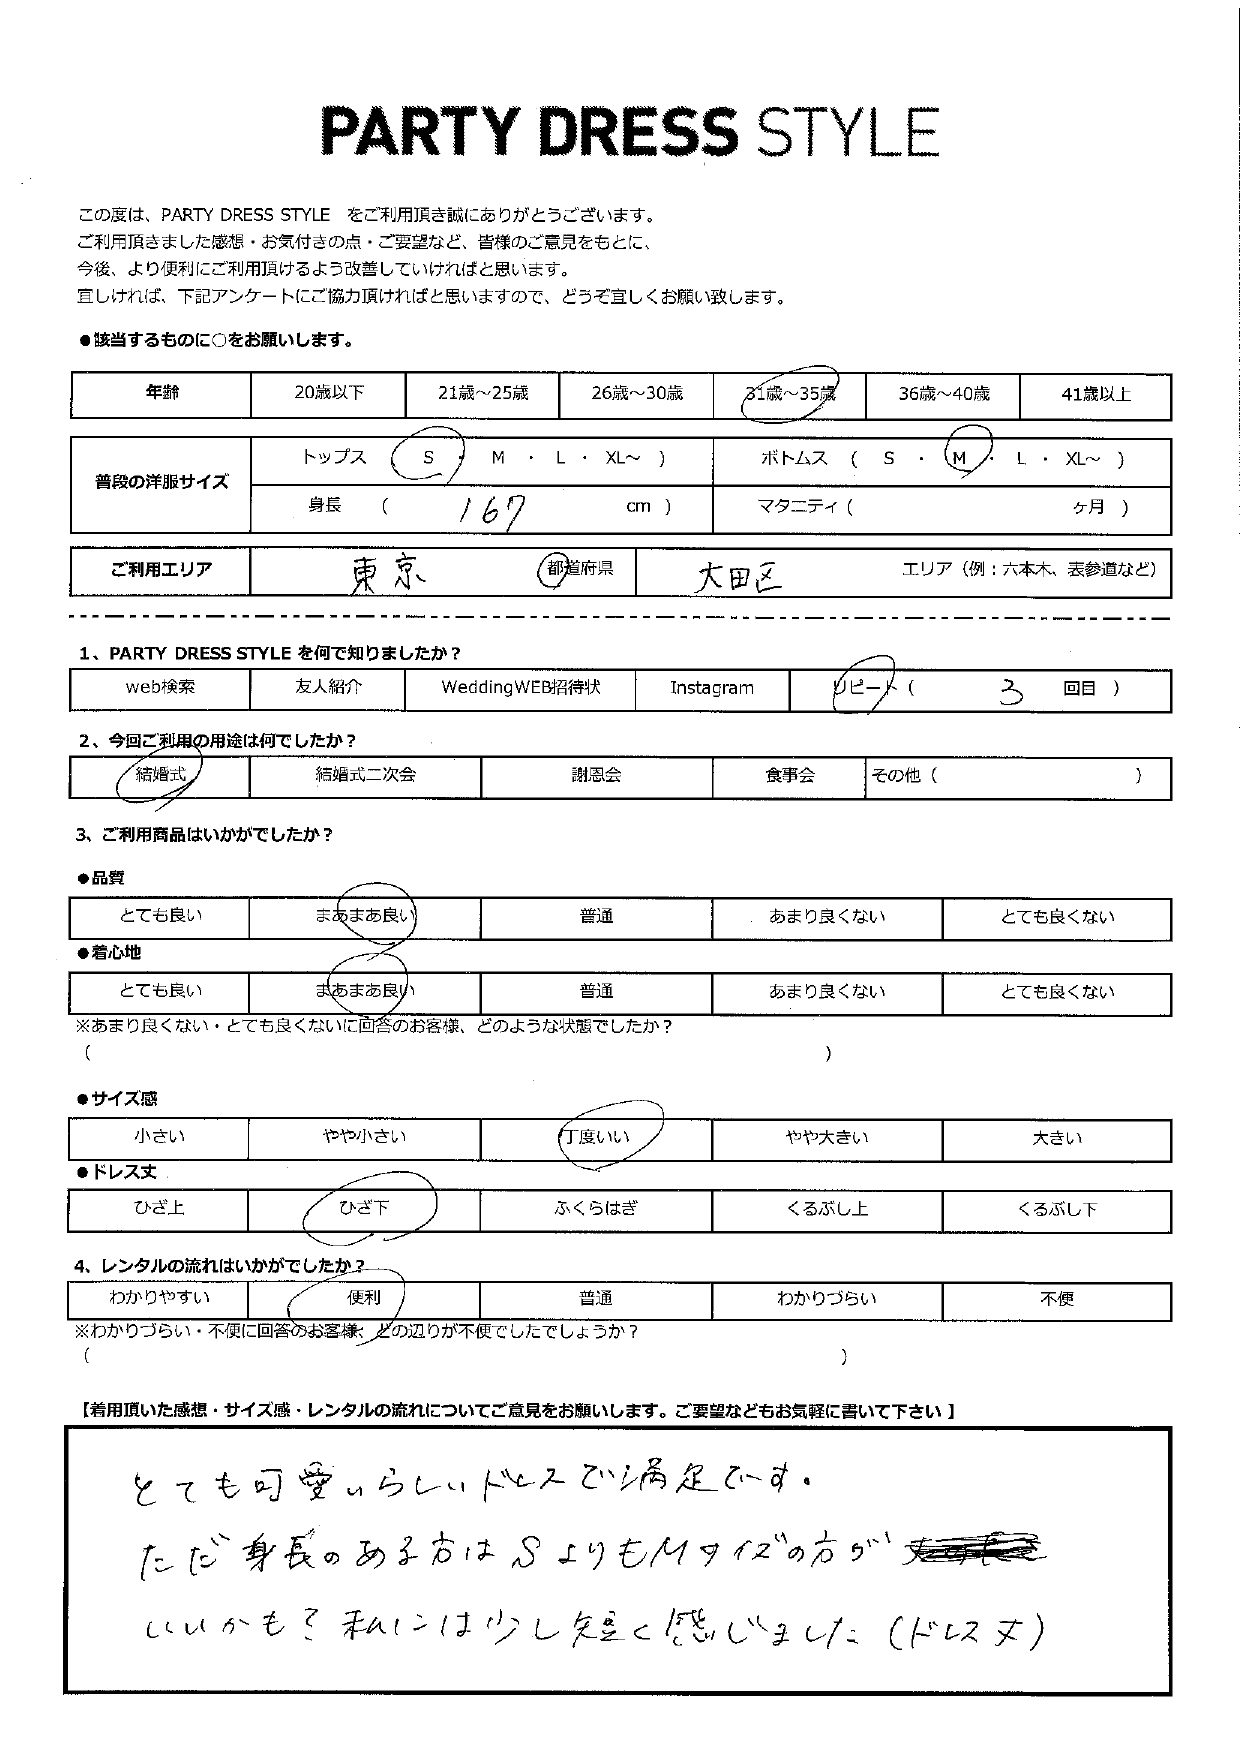 PARTY DRESS STYLE
この度は、PARTY DRESS STYLE をご利用頂き誠にありがとうございます。
ご利用頂きました感想・お気付きの点・ご要望など、皆様のご意見をもとに、
今後、より便利にご利用頂けるよう改善していければと思います。
宜しければ、下記アンケートにご協力頂ければと思いますので、どうぞ宜しくお願い致します。
●該当するものに○をお願いします。
年齢 20歳以下 21歳～25歳 26歳～30歳 31歳～35歳 36歳～40歳 41歳以上
普段の洋服サイズ トップス ( S ・ M ・ L ・ XL～ ) ボトムス ( S ・ M ・ L ・ XL～ )
身長 ( 167 cm ) マタニティ ( ヶ月 )
ご利用エリア 東京 都道府県 大田区 エリア（例：六本木、表参道など）
1、PARTY DRESS STYLE を何で知りましたか？
web検索 友人紹介 WeddingWEB招待状 Instagram リピート ( 3 回目 )
2、今回ご利用の用途は何でしたか？
結婚式 結婚式二次会 謝恩会 食事会 その他 ( )
3、ご利用商品はいかがでしたか？
●品質
とても良い まあまあ良い 普通 あまり良くない とても良くない
●着心地
とても良い まあまあ良い 普通 あまり良くない とても良くない
※あまり良くない・とても良くないに回答のお客様、どのような状態でしたか？
( )
●サイズ感
小さい やや小さい 丁度いい やや大きい 大きい
●ドレス丈
ひざ上 ひざ下 ふくらはぎ くるぶし上 くるぶし下
4、レンタルの流れはいかがでしたか？
わかりやすい 便利 普通 わかりづらい 不便
※わかりづらい・不便に回答のお客様、どの辺りが不便でしたでしょうか？
( )
【着用頂いた感想・サイズ感・レンタルの流れについてご意見をお願いします。ご要望などもお気軽に書いて下さい】
とても可愛いらしいドレスで満足です。
ただ身長のある方はSよりもMサイズの方が
いいかも？私には少し短く感じました（ドレス丈）